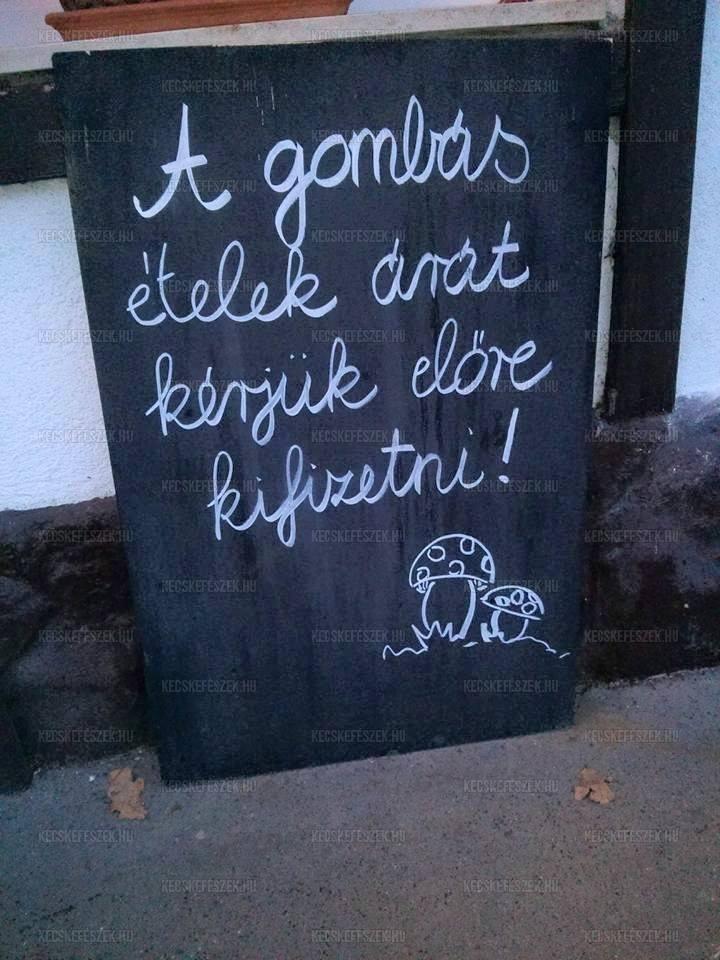 A gombás
ételek árát
kérjük előre
kifizetni!
KECSKEFÉSZEK.HU